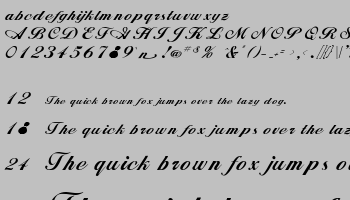 abcdefghijklmnopqrstuvwxyz
ABCDEFGHIJKLMNOPQRS
0123456789 !@#$% &'()-
12 The quick brown fox jumps over the lazy dog.
18 The quick brown fox jumps over the laz
24 The quick brown fox jumps o